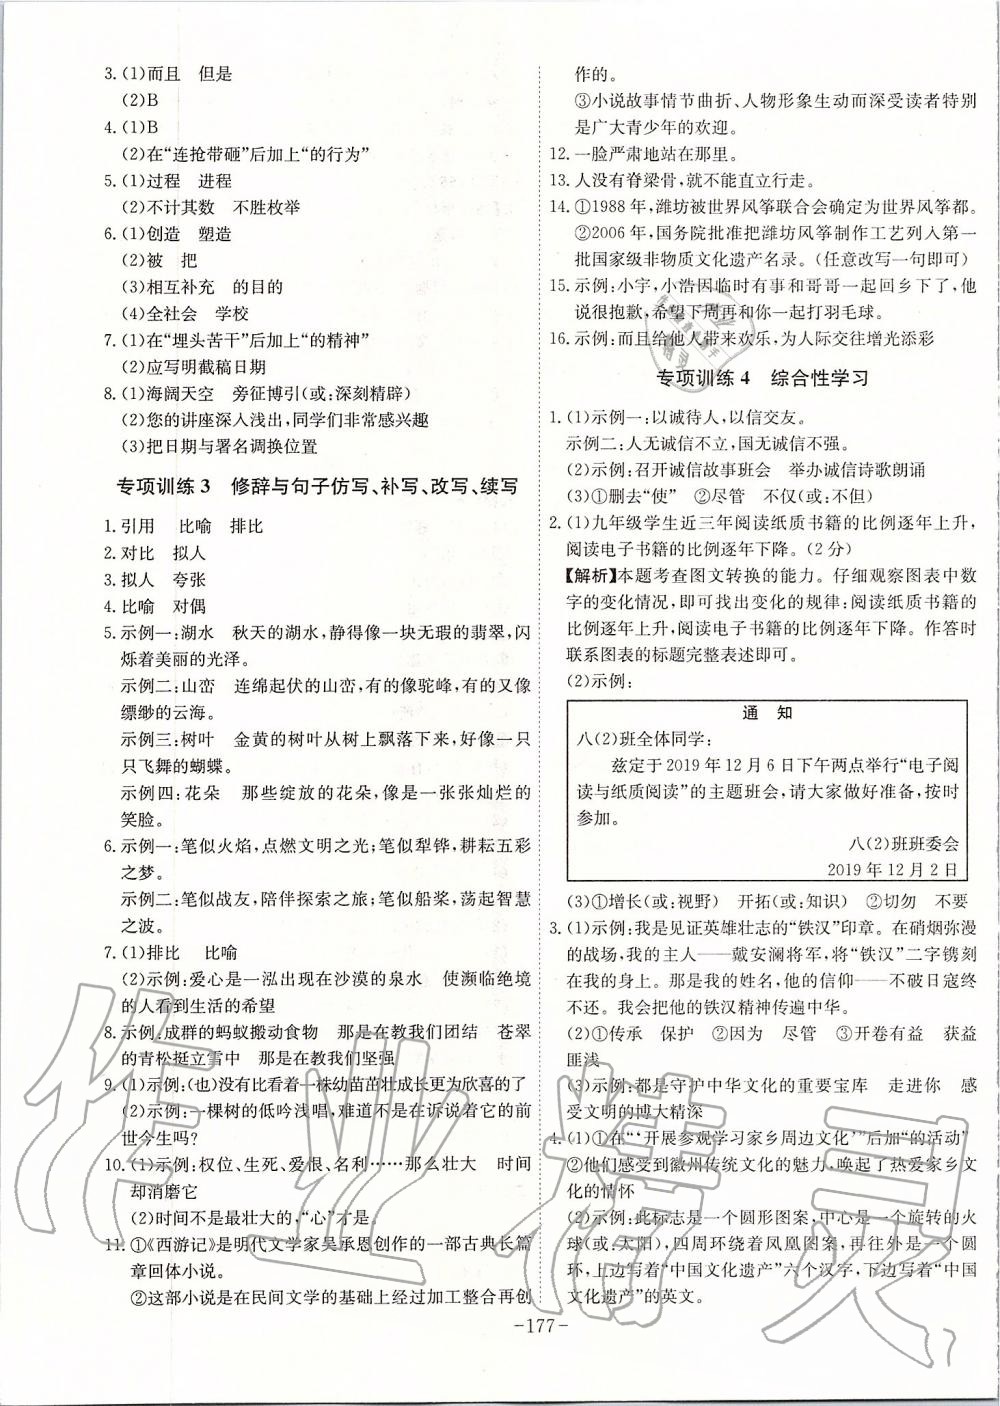 3. (1)而且　但是
(2)B
4. (1)B
(2)在“连抢带砸”后加上“的行为”
5. (1)过程　进程
(2)不计其数　不胜枚举
6. (1)创造　塑造
(2)被　把
(3)相互补充　的目的
(4)全社会　学校
7. (1)在“埋头苦干”后加上“的精神”
(2)应写明截稿日期
8. (1)海阔天空　旁征博引(或:深刻精辟)
(2)您的讲座深入浅出,同学们非常感兴趣
(3)把日期与署名调换位置
专项训练3　修辞与句子仿写、补写、改写、续写
1. 引用　比喻　排比
2. 对比　拟人
3. 拟人　夸张
4. 比喻　对偶
5. 示例一:湖水　秋天的湖水,静得像一块无瑕的翡翠,闪
烁着美丽的光泽。
示例二:山峦　连绵起伏的山峦,有的像驼峰,有的又像
缥缈的云海。
示例三:树叶　金黄的树叶从树上飘落下来,好像一只
只飞舞的蝴蝶。
示例四:花朵　那些绽放的花朵,像是一张张灿烂的
笑脸。
6. 示例一:笔似火焰,点燃文明之光;笔似犁铧,耕耘五彩
之梦。
示例二:笔似战友,陪伴探索之旅,笔似船桨,荡起智慧
之波。
7. (1)排比　比喻
(2)示例:爱心是一泓出现在沙漠的泉水　使濒临绝境
的人看到生活的希望
8. 示例:成群的蚂蚁搬动食物　那是在教我们团结　苍翠
的青松挺立雪中　那是在教我们坚强
9. (1)示例:(也)没有比看着一株幼苗茁壮成长更为欣喜的了
(2)示例:一棵树的低吟浅唱,难道不是在诉说着它的前
世今生吗?
10. (1)示例:权位、生死、爱恨、名利……那么壮大　时间
却消磨它
(2)时间不是最壮大的,“心”才是。
11. ①《西游记》是明代文学家吴承恩创作的一部古典长篇
章回体小说。
②这部小说是在民间文学的基础上经过加工整合再创
作的。
③小说故事情节曲折、人物形象生动而深受读者特别
是广大青少年的欢迎。
12. 一脸严肃地站在那里。
13. 人没有脊梁骨,就不能直立行走。
14. ①1988年,潍坊被世界风筝联合会确定为世界风筝都。
②2006年,国务院批准把潍坊风筝制作工艺列入第一
批国家级非物质文化遗产名录。(任意改写一句即可)
15. 示例:小宇,小浩因临时有事和哥哥一起回乡下了,他
说很抱歉,希望下周再和你一起打羽毛球。
16. 示例:而且给他人带来欢乐,为人际交往增光添彩
专项训练4　综合性学习
1. (1)示例一:以诚待人,以信交友。
示例二:人无诚信不立,国无诚信不强。
(2)示例:召开诚信故事班会　举办诚信诗歌朗诵
(3)①删去“使”　②尽管　不仅(或:不但)
2. (1)九年级学生近三年阅读纸质书籍的比例逐年上升,
阅读电子书籍的比例逐年下降。(2分)
【解析】本题考查图文转换的能力。仔细观察图表中数
字的变化情况,即可找出变化的规律:阅读纸质书籍的
比例逐年上升,阅读电子书籍的比例逐年下降。作答时
联系图表的标题完整表述即可。
(2)示例:
通　知
八(2)班全体同学:
兹定于2019年12月6日下午两点举行“电子阅
读与纸质阅读”的主题班会,请大家做好准备,按时
参加。
八(2)班班委会
2019年12月2日
(3)①增长(或:视野)　开拓(或:知识)　②切勿　不要
3. (1)示例:我是见证英雄壮志的“铁汉”印章。在硝烟弥漫
的战场,我的主人——戴安澜将军,将“铁汉”二字镌刻
在我的身上。那是我的姓名,他的信仰——不破日寇终
不还。我会把他的铁汉精神传遍中华。
(2)①传承　保护　②因为　尽管　③开卷有益　获益
匪浅
(3)示例:都是守护中华文化的重要宝库　走进你　感
受文明的博大精深
4. (1)①在“‘开展参观学习家乡周边文化’”后加“的活动”
②他们感受到徽州传统文化的魅力,唤起了热爱家乡文
化的情怀
(2)示例:此标志是一个圆形图案,中心是一个旋转的火
球(或:太阳),四周环绕着凤凰图案,再往外是一个圆
环,上边写着“中国文化遗产”六个汉字,下边写着“中国
文化遗产”的英文。
-177-
作业精灵